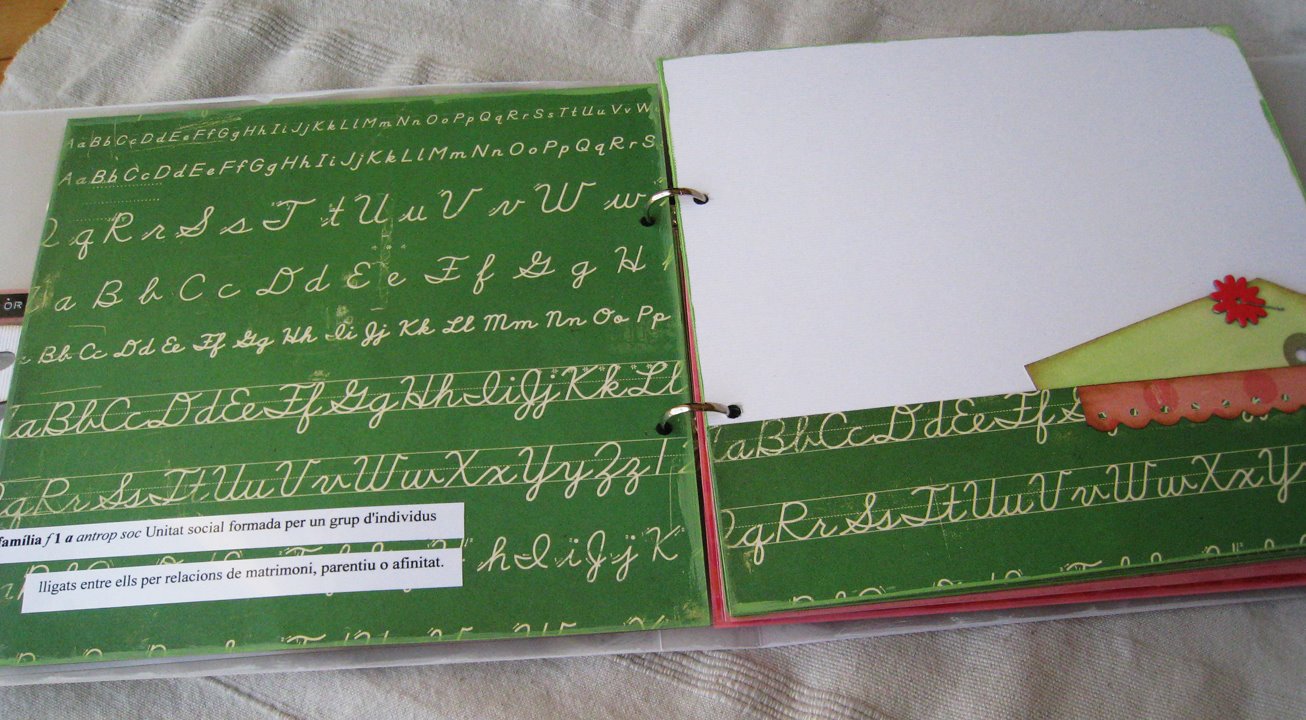 AaBbCcDdEeFfGgHhIiJjKkLlMmNnOoPpQqRrSsTtUuVvW
AaBbCcDdEeFfGgHhIiJjKkLlMmNnOoPpQqRrS
Q q R r S s T t U u V v W w
a B b C c D d E e F f G g H
Bb Cc Dd Ee Ff Gg Hh Ii Jj Kk Ll Mm Nn Oo Pp
aBbCcDdEeFfGgHhIiJjKkLl
qRrSsTtUuVvWwXxYyZz!
família f 1 a antrop soc Unitat social formada per un grup d'individus
h I i J j K
lligats entre ells per relacions de matrimoni, parentiu o afinitat.
ÒR
aBbCcDdEeFf
QqRrSsTtUuVvWwXxY